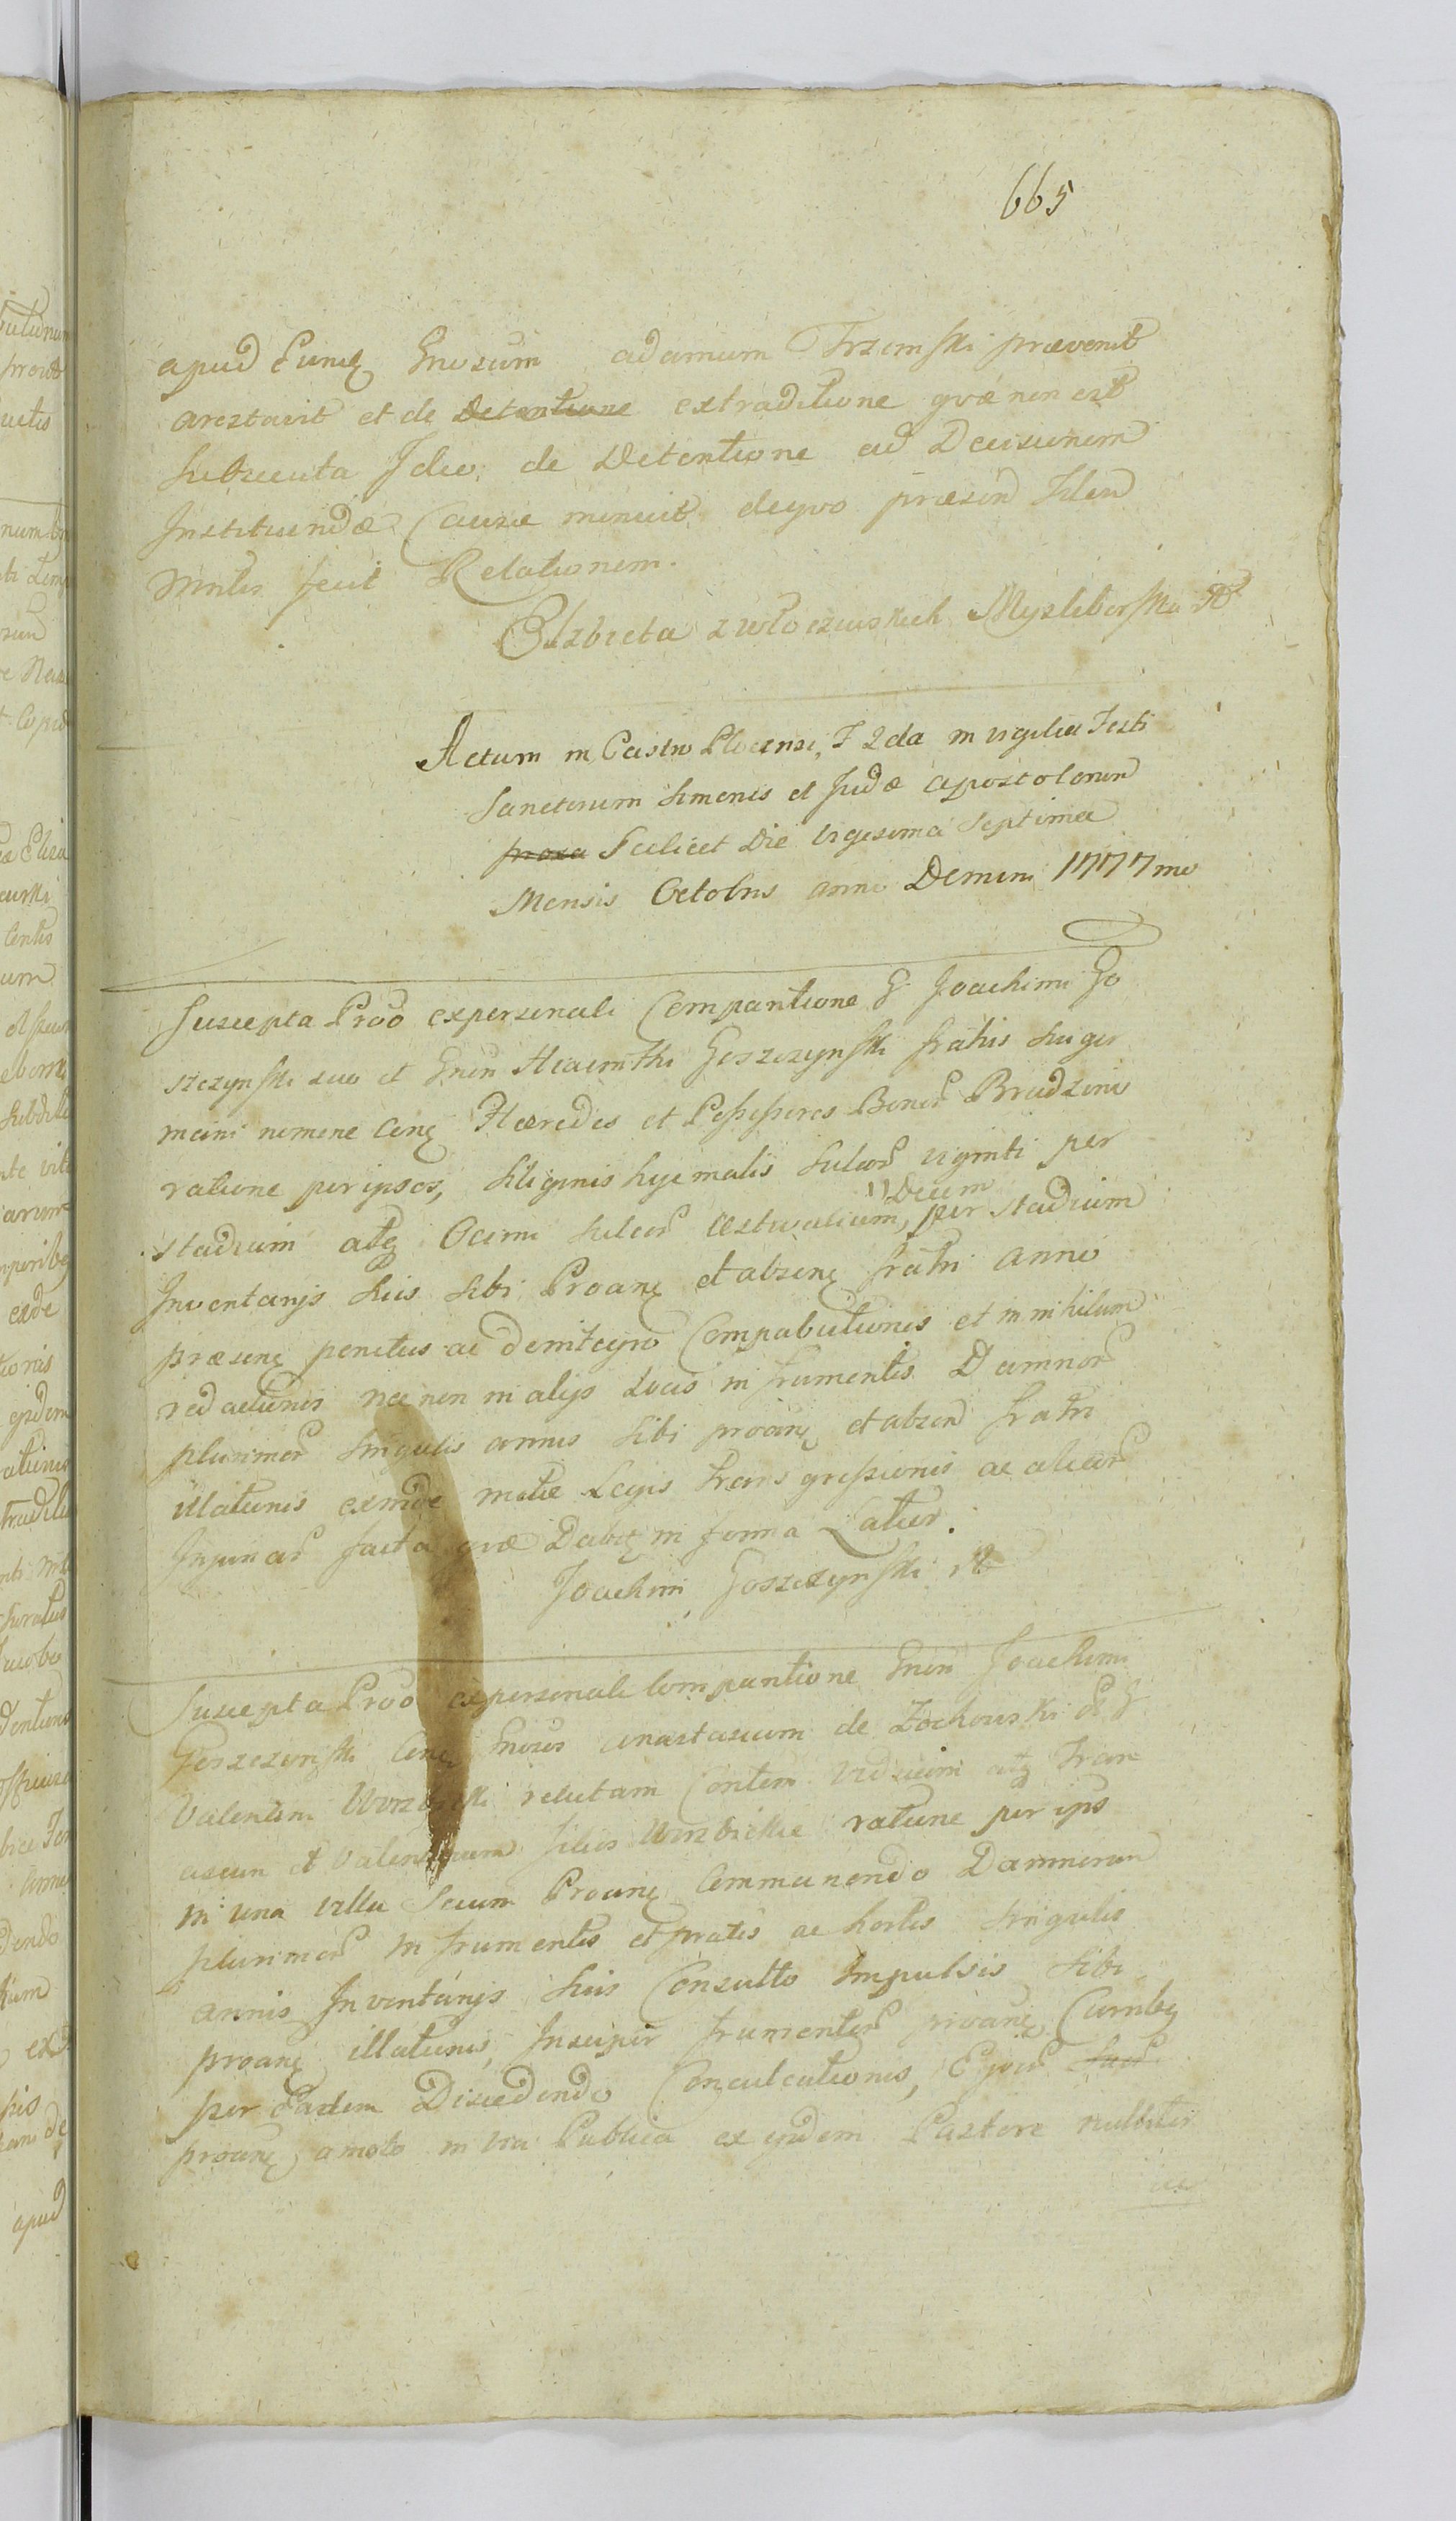 665
apud Eundē Gnosum adamum Trzcinski prævenit
arestavit et de Detentione extraditione qvæ non est
subsecuta Ideo de Detentione ad Decisionem
Instituendæ Causæ monuit deqvo præsen
fecit Relationem.
Elzbieta zWłoczewskich Mysliborska
Actum in Castro Plocensi, F 2da in vigilia Festi
Sanctorum Simonis et Judæ Apostolorum
Scilicet Die vigesima Septima
Mensis Octobris anni Domini 1777mo
Suscepta Prōō expersonali Comparitione G Joachimi Go
szczynski suo et Gnēn Hiacinthi Goszczynski fratris sui ger
mani nomine conē Hæredes et Possessores Bonor̄ Brudzino
ratione per ipsos, Siliginis hyemalis sulcor̄ viginti per
stadium atq̄ Ocimi sulcor̄ æstivalium, Decem per stadium
Inventarijs suis sibi Proanē et absenē fratri anno
præsenē penitus ac deintegro Compabulationis et in nihilum
redactionis nec non in alijs Locis in frumentis Damnor̄
plurimor̄ singulis annis sibi proanē et absen fratri
illationis exinde motæ Legis transgressionis ac aliar̄
Injuriar̄ facta qvæ Dabit̄ in forma Latior.
Joachim Goszczynski
Suscepta Prōō expersonali Comparitione Gnēn Joachimi
Goszczynski Conē Gnosos anastasiam de Zochowski
Valentini Wierzbicki relictam Contem Viduam atq̄ Fran
ciscum et Valentinum filios Wierzbickie ratione per ips
in una villa Secum Proanē Commanendo Damnorum
plurimor̄ in frumentis et pratis ac hortis singulis
annis Inventarijs suis Consulto Impulsis sibi
proanē illationis, Insuper frumentor̄ proanē Curribq̄
per Eadem Discedendo Conculcationis, Eqvor̄ suor̄
proanē amoto in via Publica ex ijsdem Pastore